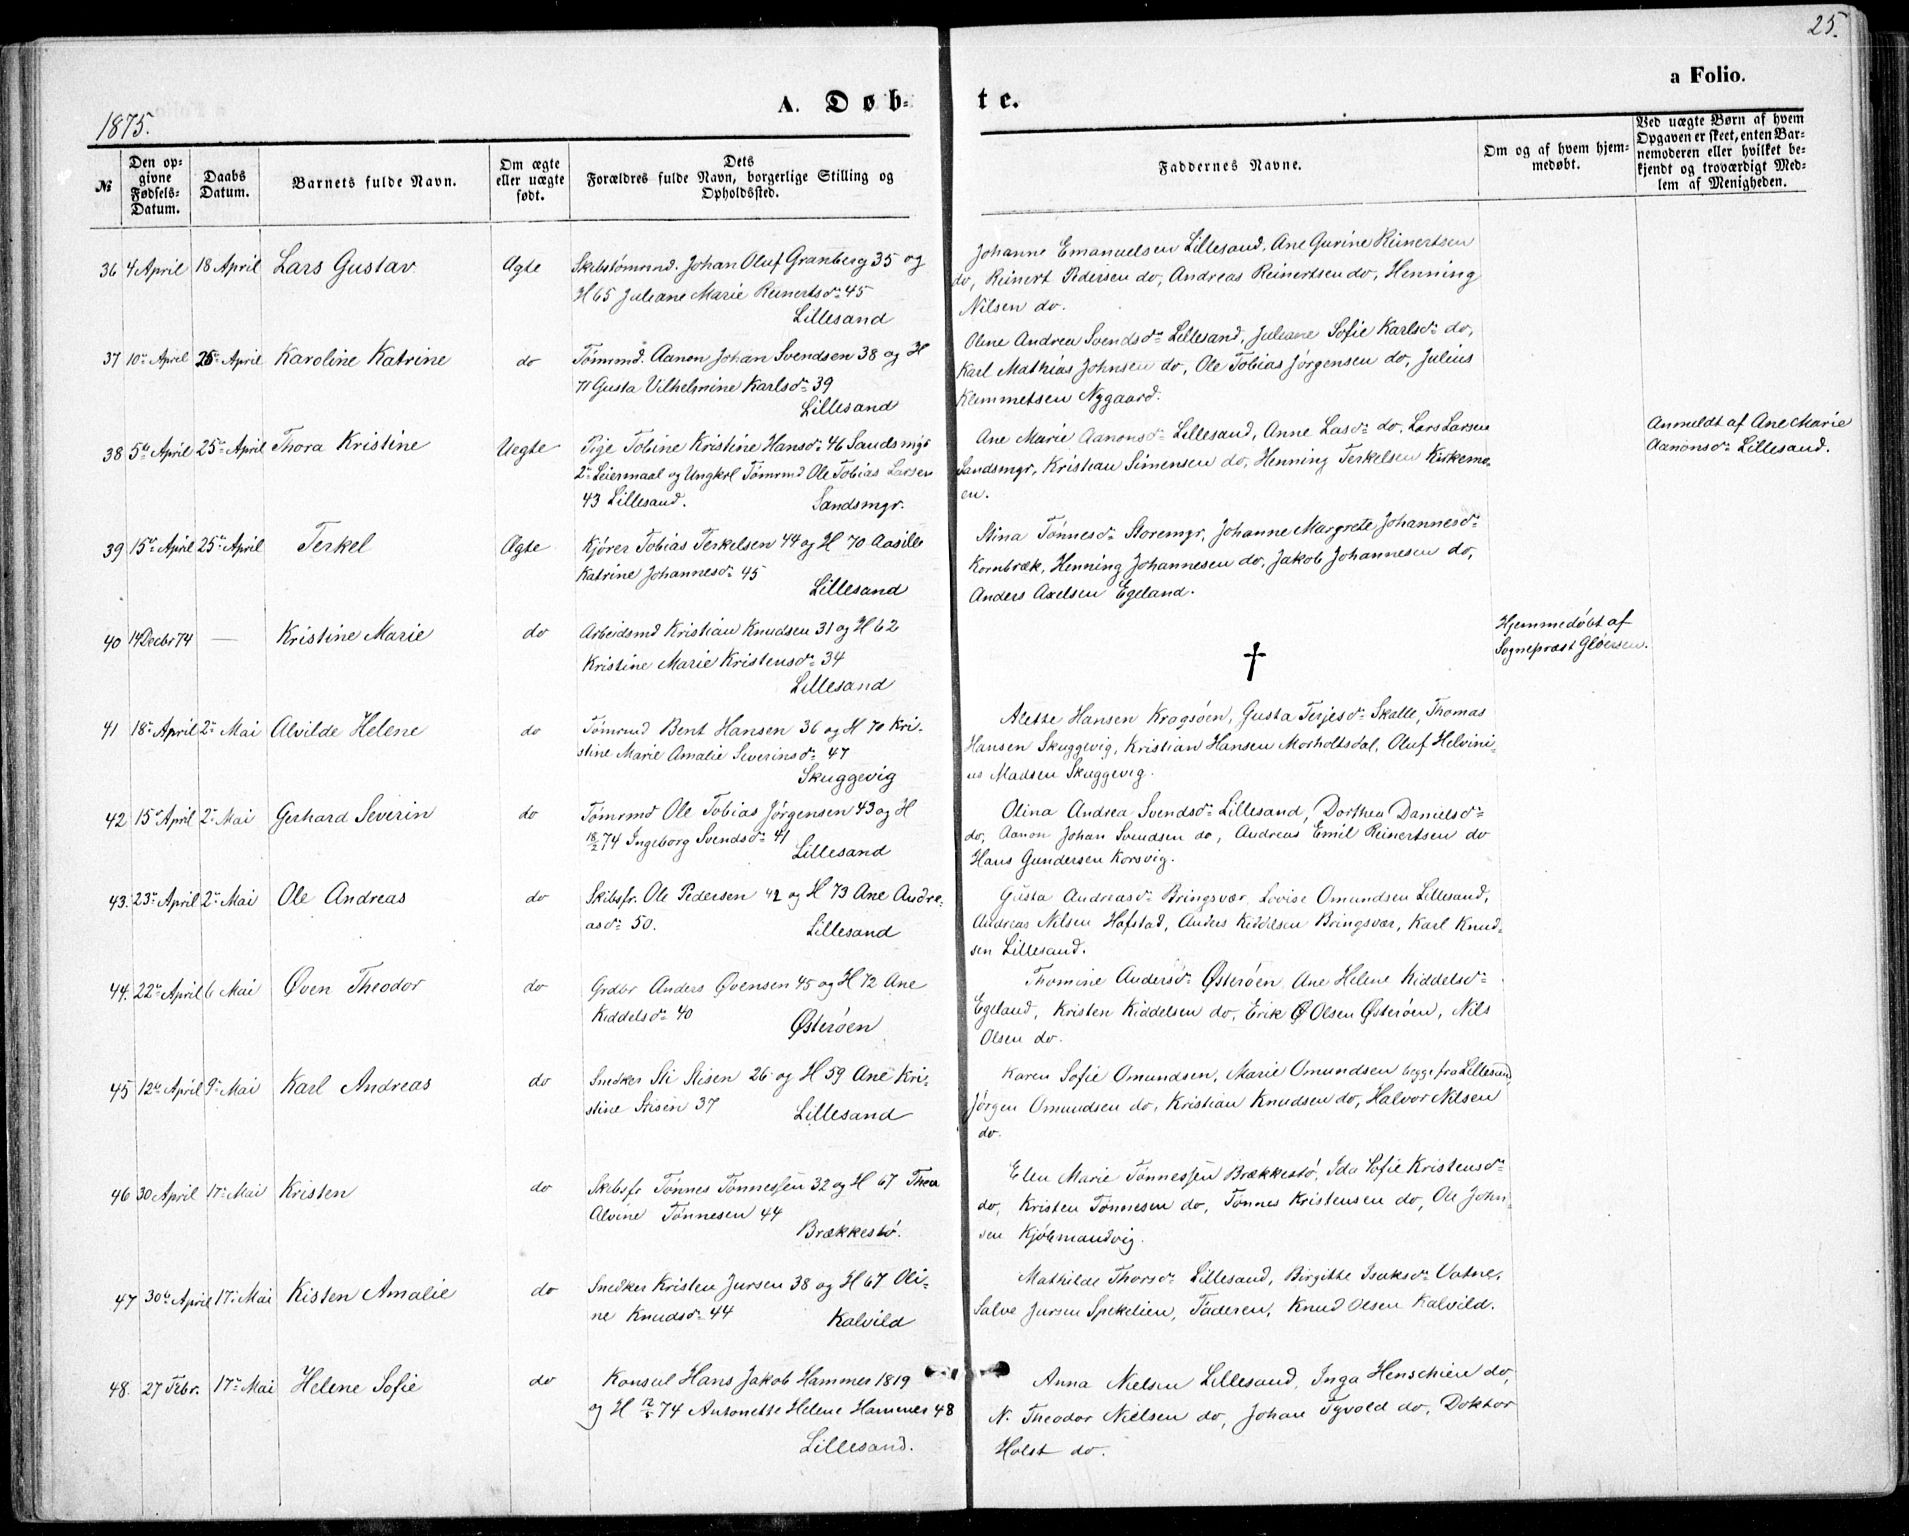 25.
a Folio.
A. Døb-
te.
1875.
№
Den op-
givne
Fødsels-
Datum.
Daabs
Datum.
Barnets fulde Navn.
Om ægte
eller uægte
født.
Dets
Forældres fulde Navn, borgerlige Stilling og
Opholdssted.
Faddernes Navne.
Om og af hvem hjem-
medøbt.
Ved uægte Børn af hvem
Opgaven er skeet, enten Bar-
nemoderen eller hvilket be-
kjendt og troværdigt Med-
lem af Menigheden.
36 4 April 18 April Lars Gustav Ægte Skibstømrmd. Johan Oluf Granberg 35 og
H 65 Juliane Marie Reinertsdr 45
Lillesand
Johanne Emanuelsen Lillesand, Ane Gurine Reinertsen
do, Reinert Pedersen do, Andreas Reinertsen do, Henning
Nilsen do.
37 10de April 25de April Karoline Katrine do Tømrmd. Aanon Johan Svendsen 38 og H
71 Gusta Vilhelmine Karlsdr 39
Lillesand
Oline Andrea Svendsdr Lillesand, Juliane Sofie Karlsdr do,
Karl Mathias Johnsen do, Ole Tobias Jørgensen do, Julius
Klemmetsen Nygaard.
38 5te April 25de April Thora Kristine Uegte Pige Tobine Kristine Hansdr 46 Sandsmgr
2det Leiermaal og Ungkrl Tømrmd Ole Tobias Larsen
43 Lillesand. Sandsmgr.
Ane Marie Aanonsdr Lillesand, Anne Lasdr do, Lars Larsen
Sandsmgr, Kristian Simensen do, Henning Terkelsen Kirkemo-
en.
Anmeldt af Ane Marie
Aanonsdr Lillesand.
39 15de April 25de April Terkel Ægte Kjører Tobias Terkelsen 44 og H 70 Aasille
Katrine Johannesdr 45
Lillesand
Stina Tønnesdr Storemgr, Johanne Margrete Johannesdr
Kornbræk, Henning Johannesen do, Jakob Johannesen do,
Anders Axelsen Egeland.
40 14 Decbr 74 — Kristine Marie do Arbeidsmd Kristian Knudsen 31 og H 62
Kristine Marie Kristensdr 34
Lillesand
†
Hjemmedøbt af
Sognepræst Gløersen.
41 18de April 2den Mai Alvilde Helene do Tømrmd Bent Hansen 36 og H 70 Kri-
stine Marie Amalie Severinsdr 47
Skuggevig
Alette Hansen Kragsøen, Gusta Terjesdr Skalle, Thomas
Hansen Skuggevig, Kristian Hansen Morholtsdal, Oluf Helvini-
us Madsen Skuggevig.
42 15de April 2den Mai Gerhard Severin do Tømrmd Ole Tobias Jørgensen 43 og H
18/2 74 Ingeborg Svendsdr 41
Lillesand
Olina Andrea Svendsdr Lillesand, Dorthea Danielsdr
do, Aanon Johan Svendsen do, Andreas Emil Reinertsen do
Hans Gundersen Korsvig.
43. 23de April 2den Mai Ole Andreas do Skibsfr. Ole Pedersen 42 og H 73 Ane Andre-
asdr 50.
Lillesand
Gusta Andreasdr Bringsvær, Lovise Omundsen Lillesand,
Andreas Nilsen Hafstad, Anders Kiddelsen Bringsvær, Karl Knud-
sen Lillesand.
44. 22de April 6 Mai Øven Theodor do Grdbr Anders Øvensen 45 og H 72 Ane
Kiddelsdr 40
Østerøen
Thomine Andersdr Østerøen, Ane Helene Kiddelsdr
Egeland, Kristen Kiddelsen do, Erik Ø Olsen Østerøen, Nils
Olsen do.
45 12te April 9de Mai Karl Andreas do Snedker Sti Stisen 26 og H 59 Ane Kri-
stine Stisen 37
Lillesand
Karen Sofie Omundsen, Marie Omundsen begge fra Lillesand,
Jørgen Omundsen do, Kristian Knudsen do, Halvor Nilsen
do.
46 30 April 17de Mai Kristen do Skibsfr Tønnes Tønnessen 32 og H 67 Thea
Alvine Tønnesen 44
Brækkestø.
Elen Marie Tønnessen Brækkestø, Ida Sofie Kristensdr
do, Kristen Tønnesen do, Tønnes Kristensen do, Ole John-
sen Kjøbmandvig.
47 30te April 17de Mai Kisten Amalie do Snedker Kristen Jursen 38 og H 67 Oli-
ne Knudsdr 44
Kalvild
Mathilde Thorsdr Lillesand, Birgitte Isaksdr Vatne,
Salve Jursen Spekelien, Faderen, Knud Olsen Kalvild.
48. 27 Febr. 17de Mai Helene Sofie do Konsul Hans Jakob Hammer 1819
og H 12/5 74 Antonette Helene Hammer 48
Lillesand.
Anna Nielsen Lillesand, Inga Henschien do,
N. Theodor Nielsen do, Johan Tyvold do, Doktor
Holst do.